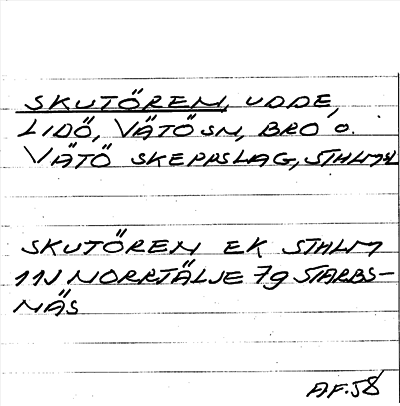 SKUTÖREN, UDDE,
LIDÖ, VÄTÖ SN, BRO O.
VÄTÖ SKEPPSLAG, STHLMSL
SKUTÖREN EK STHLM
11J NORRTÄLJE 7g STARBS-
NÄS
AF.58